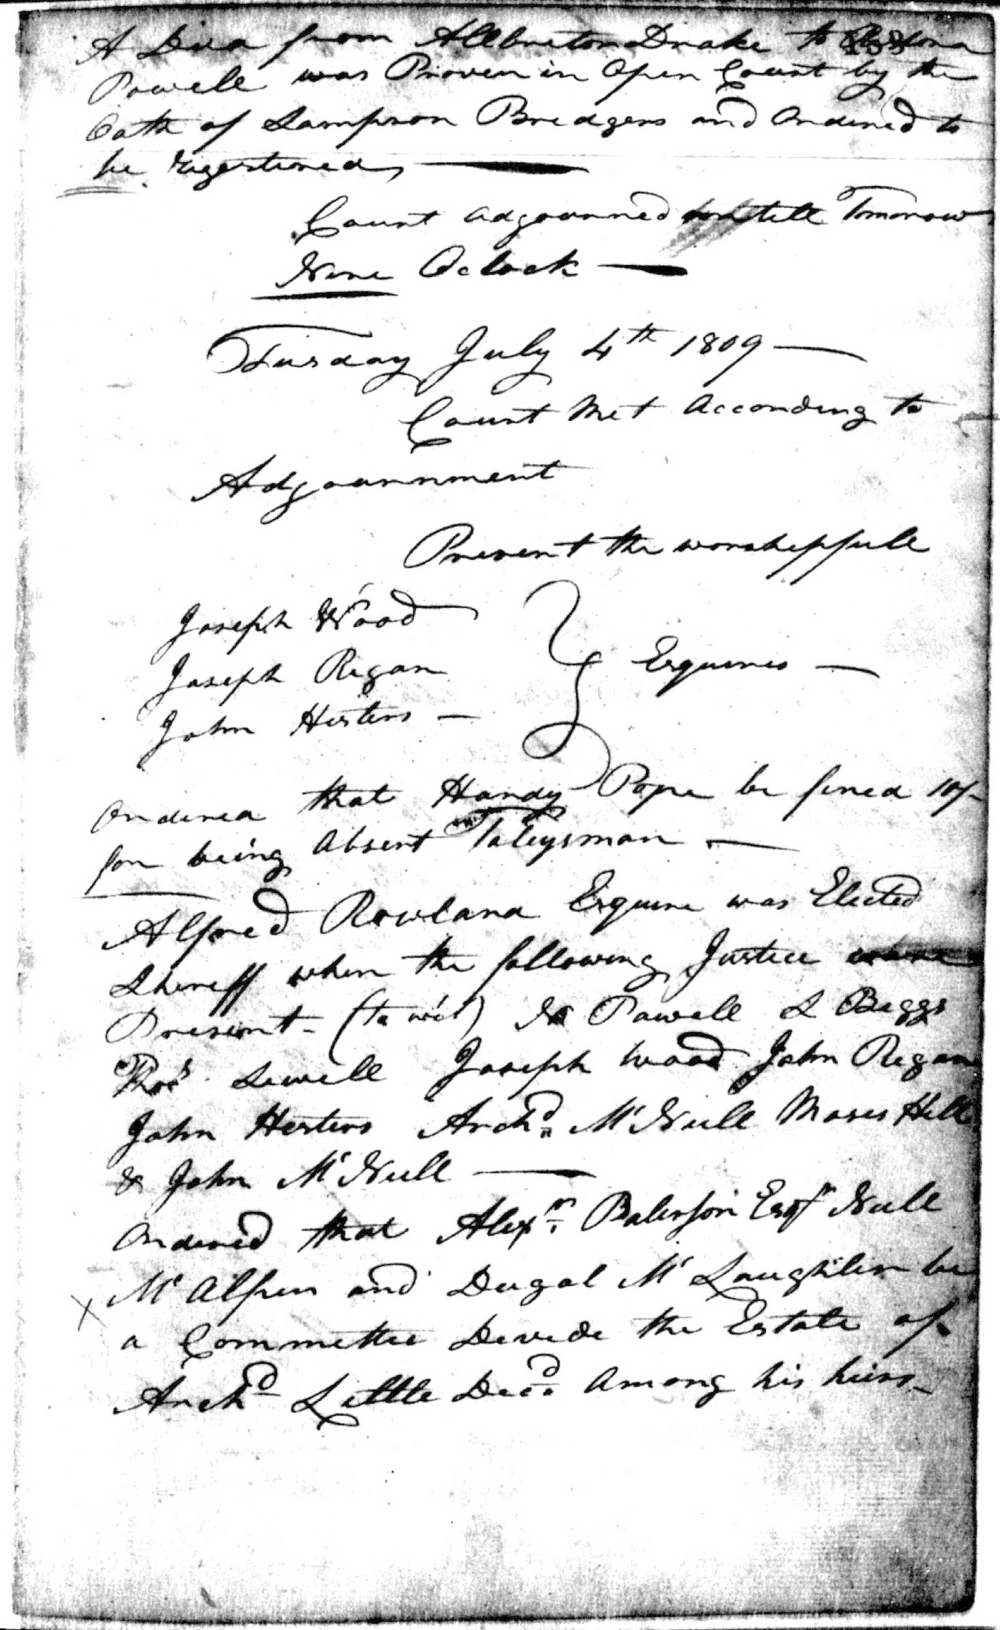 A Deed from Allbreton Drake to
Powell was Proven in Open Court by the
Oath of Sampson Bredgers and Ordered to
be Regestered
Court adgourned untill Tomorrow
Nine Oclock
Tusday July 4th 1809
Court Met According to
Adgournment
Present the worshepfull
Joseph Wood
Joseph Regan
John Hesters
Esquires
Ordered that Hardy Pope be fined 10/-
for being Absent Taleysman
Alfred Rowland Esquire was Elected
Shereff when the following Justice where
Present - (to wit) N Powell S Beggs
Thos Sewell Joseph Wood John Regan
John Hesters Archd McNeill Moses Hill
& John McNeill
Ordered that Alexr Esqr Neill
McAlpen and Dugal McLaughlin be
a Committee Devede the Estate of
Archd Little Decd Among his heirs